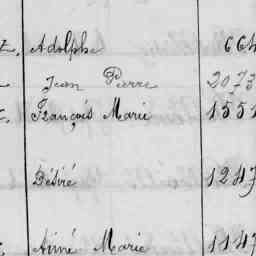 Adolphe 664
Jean Pierre 2073
François Marie 1551
Désiré 1247
Aimé Marie 1147